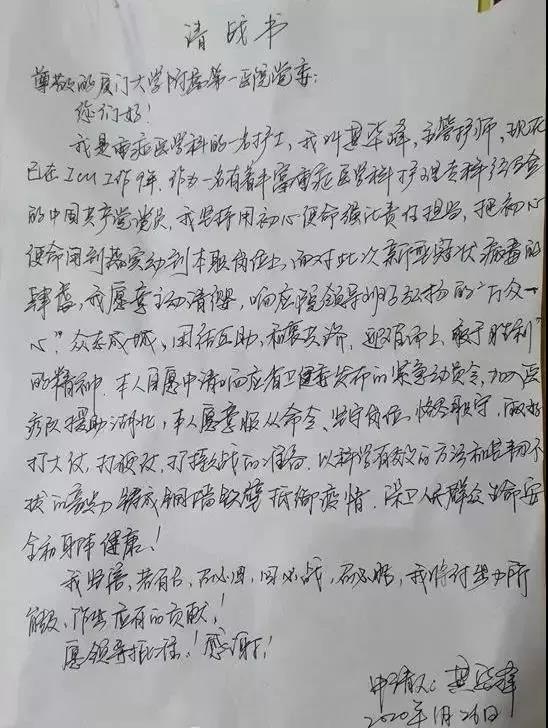 请战书
尊敬的厦门大学附属第一医院党委:
您们好!
我是重症医学科的一名护士,我叫 华峰,主管护师,现
已在ICU工作9年.作为一名有着丰富重症医学科护理专科经验
的中国共产党党员,我坚持用初心使命强化责任担当,把初心
使命用到落实动到本职岗位上,面对此次新型冠状病毒的
肆虐,我愿意主动请缨,响应院领导 弘扬的"万众一
心"众志成城、团结互助、和衷共济、迎难而上、敢于胜利"
的精神.本人自愿申请响应省卫健委发布的紧急动员令,加入医
疗队援助湖北,本人愿意服从命令、坚守岗位、恪尽职守,做好
打大仗,打硬仗,打持久战的准备.以科学有效的方法和坚韧不
拔的意志力铸成铜墙铁壁抵御疫情.保卫人民群众生命安
全和身体健康!
我坚信,若有召,召必回,回必战,召必胜,我将付出力所
能及,作出应有的贡献!
愿领导批准!感谢!
申请人: 华峰
2020年1月26日